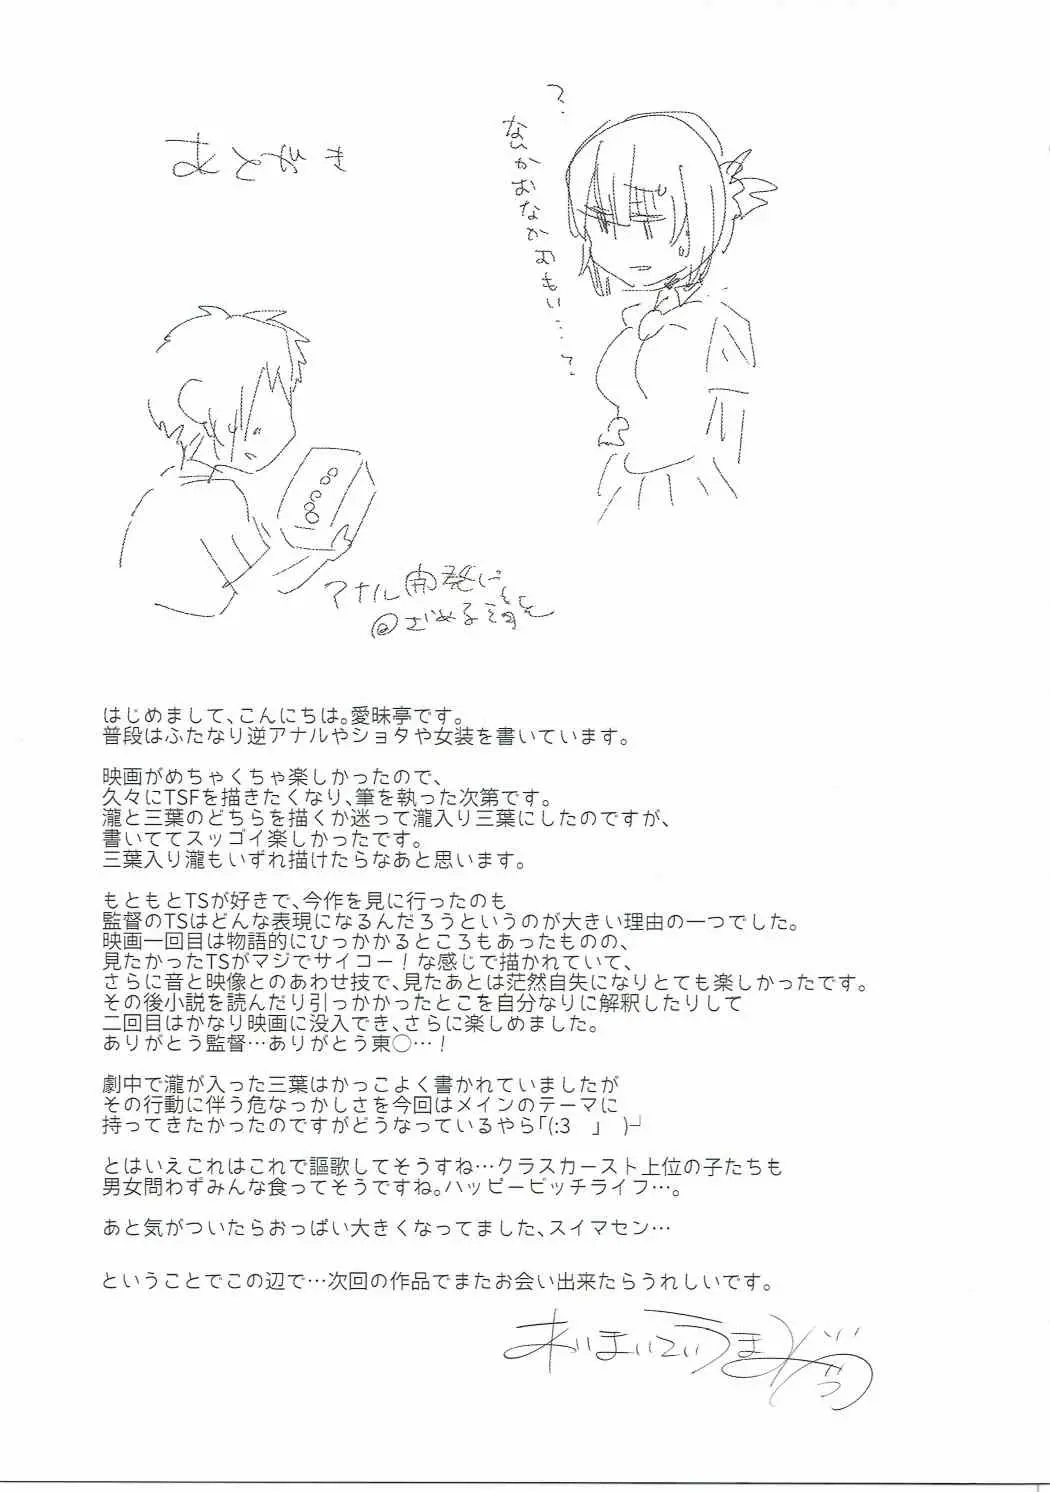 あとがき
?
なんかおなかおもい…?
アナル開発に
めざめる
はじめまして、こんにちは。愛昧亭です。
普段はふたなり逆アナルやショタや女装を書いています。
映画がめちゃくちゃ楽しかったので、
久々にTSFを描きたくなり、筆を執った次第です。
瀧と三葉のどちらを描くか迷って瀧入り三葉にしたのですが、
書いててスッゴイ楽しかったです。
三葉入り瀧もいずれ描けたらなあと思います。
もともとTSが好きで、今作を見に行ったのも
監督のTSはどんな表現になるんだろうというのが大きい理由の一つでした。
映画一回目は物語的にひっかかるところもあったものの、
見たかったTSがマジでサイコー!な感じで描かれていて、
さらに音と映像とのあわせ技で、見たあとは茫然自失になりとても楽しかったです。
その後小説を読んだり引っかかったとこを自分なりに解釈したりして
二回目はかなり映画に没入でき、さらに楽しめました。
ありがとう監督…ありがとう東○…!
劇中で瀧が入った三葉はかっこよく書かれていましたが
その行動に伴う危なっかしさを今回はメインのテーマに
持ってきたかったのですがどうなっているやら「(:3 」 )┘
とはいえこれはこれで謳歌してそうすね…クラスカースト上位の子たちも
男女問わずみんな食ってそうですね。ハッピービッチライフ…。
あと気がついたらおっぱい大きくなってました、スイマセン…
ということでこの辺で…次回の作品でまたお会い出来たらうれしいです。
あいまいていうまみぞう